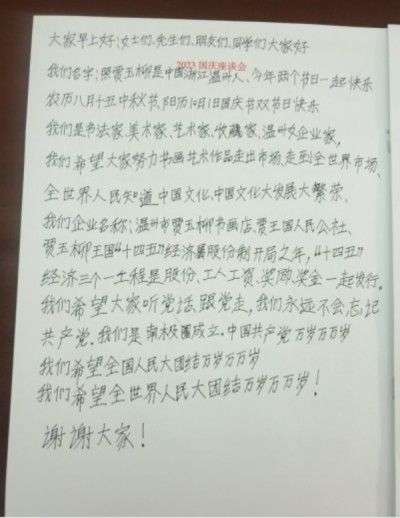 大家早上好!女士们、先生们、朋友们、同学们大家好
2023 国庆座谈会
我们名字:贾玉柳是中国浙江温州人、今年两个节日一起快乐
农历八月十五中秋节,阳历10月1日国庆节双节日快乐
我们是书法家、美术家、艺术家、收藏家、温州女企业家,
我们希望大家努力书画艺术作品走出市场,走到全世界市场、
全世界人民知道中国文化、中国文化大发展大繁荣、
我们企业名称:温州市贾玉柳书画店、贾王国人民公社、
贾玉柳王国“十四五”经济股份制开局之年,“十四五”
经济三个一工程是股份、工人工资、奖励奖金一起发行。
我们希望大家听党话、跟党走,我们永远不会忘记
共产党,我们是南极国成立,中国共产党万岁万万岁
我们希望全国人民大团结万岁万万岁
我们希望全世界人民大团结万岁万万岁!
谢谢大家!